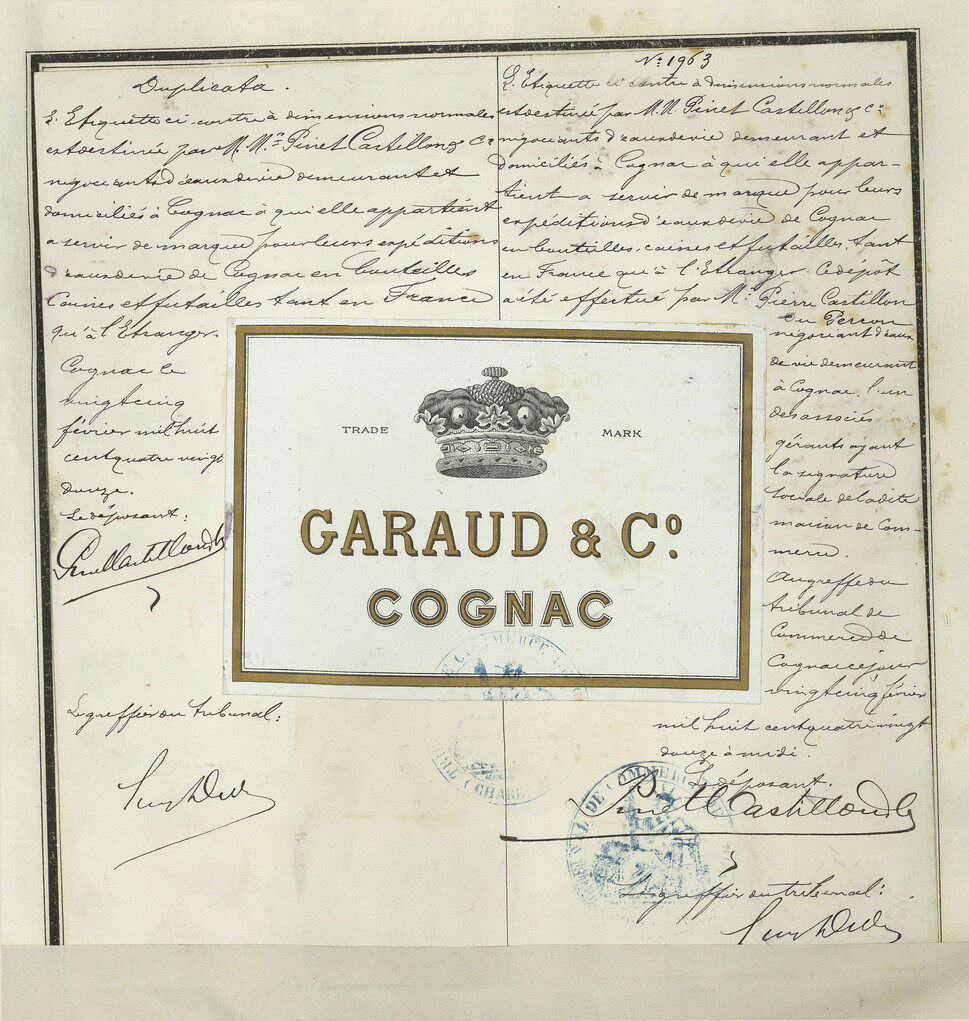 Duplicata.
L'Etiquette ci contre à dimensions normales
est destinée par M.M.rs Pinet Castillon & Cie
négociants d'eaux de vie demeurant et
domiciliés à Cognac à qui elle appartient
a servir de marque pour leurs expéditions
d'eaux de vie de Cognac en bouteilles
Caisses et futailles tant en France
qu'à l'Etranger.
Cognac le
vingt cinq
février mil huit
cent quatre vingt
douze.
Le déposant:
Pinet Castillon & Cie
Le greffier du tribunal:
No 1963
L'Etiquette ci contre à dimensions normales
est destinée par M.M. Pinet Castillon & Cie
négociants d'eaux de vie demeurant et
domiciliés à Cognac à qui elle appar-
tient a servir de marque pour leurs
expéditions d'eaux de vie de Cognac
en bouteilles, caisses et futailles, tant
en France qu'à l'Etranger. Ce dépôt
a été effectué par Mr Pierre Castillon
du Perron
négociant d'eaux
de vie demeurant
à Cognac, l'un
des associés
gérants ayant
la signature
sociale de la dite
maison de Com-
merce.
Au greffe du
tribunal de
Commerce de
Cognac ce jour
vingt cinq février
mil huit cent quatre vingt
douze à midi.
Le déposant.
Pinet Castillon & Cie
Le greffier du tribunal:
TRADE MARK
GARAUD & Co.
COGNAC
DE COMMERCE